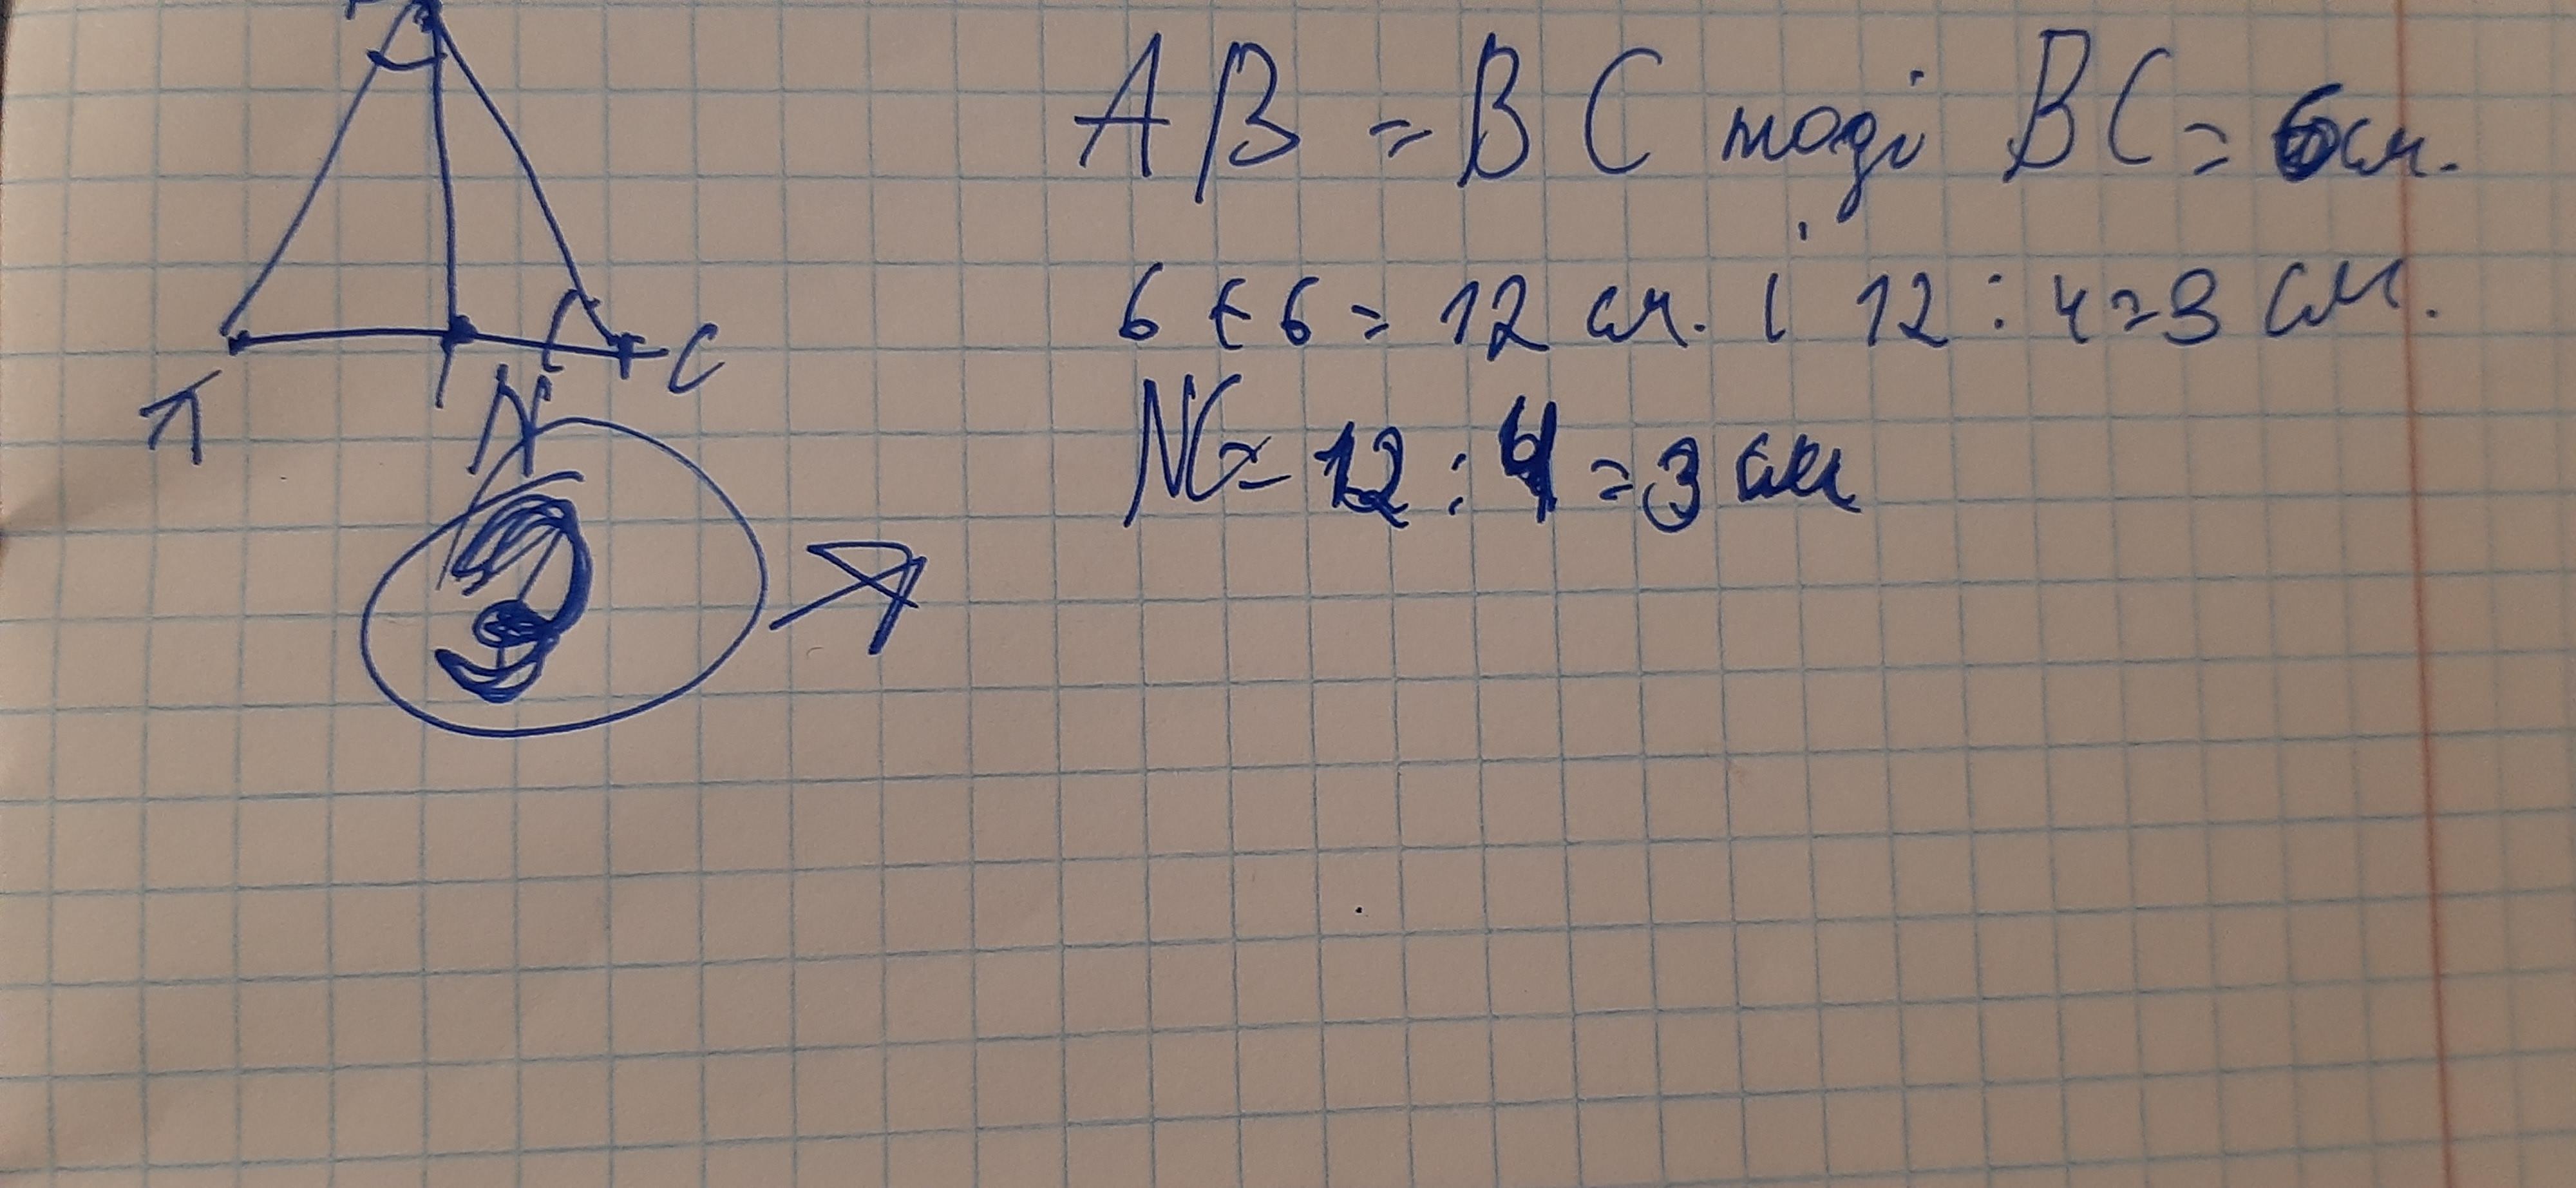 AB = BC тоді BC = 6 см.
6 + 6 = 12 см. і 12 : 4 = 3 см.
C
N
NC = 12 : 4 = 3 см